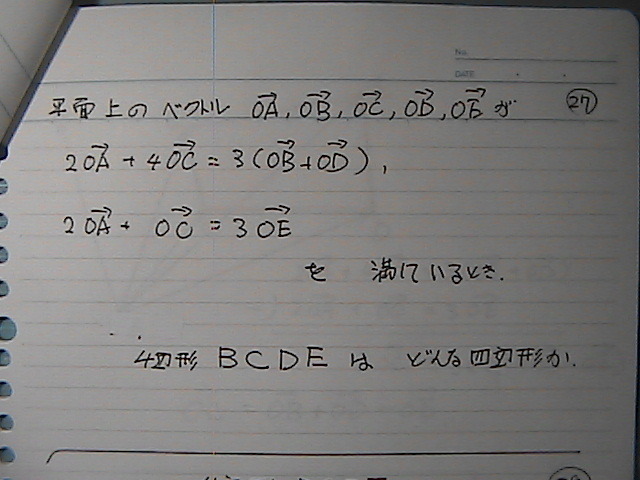 No.
DATE
平面上の ベクトル OA→, OB→, OC→, OD→, OE→ が ㉗
2OA→ + 4OC→ = 3(OB→+OD→),
2OA→ + OC→ = 3OE→
を 満ているとき.
4辺形 BCDE は どんな四辺形か.